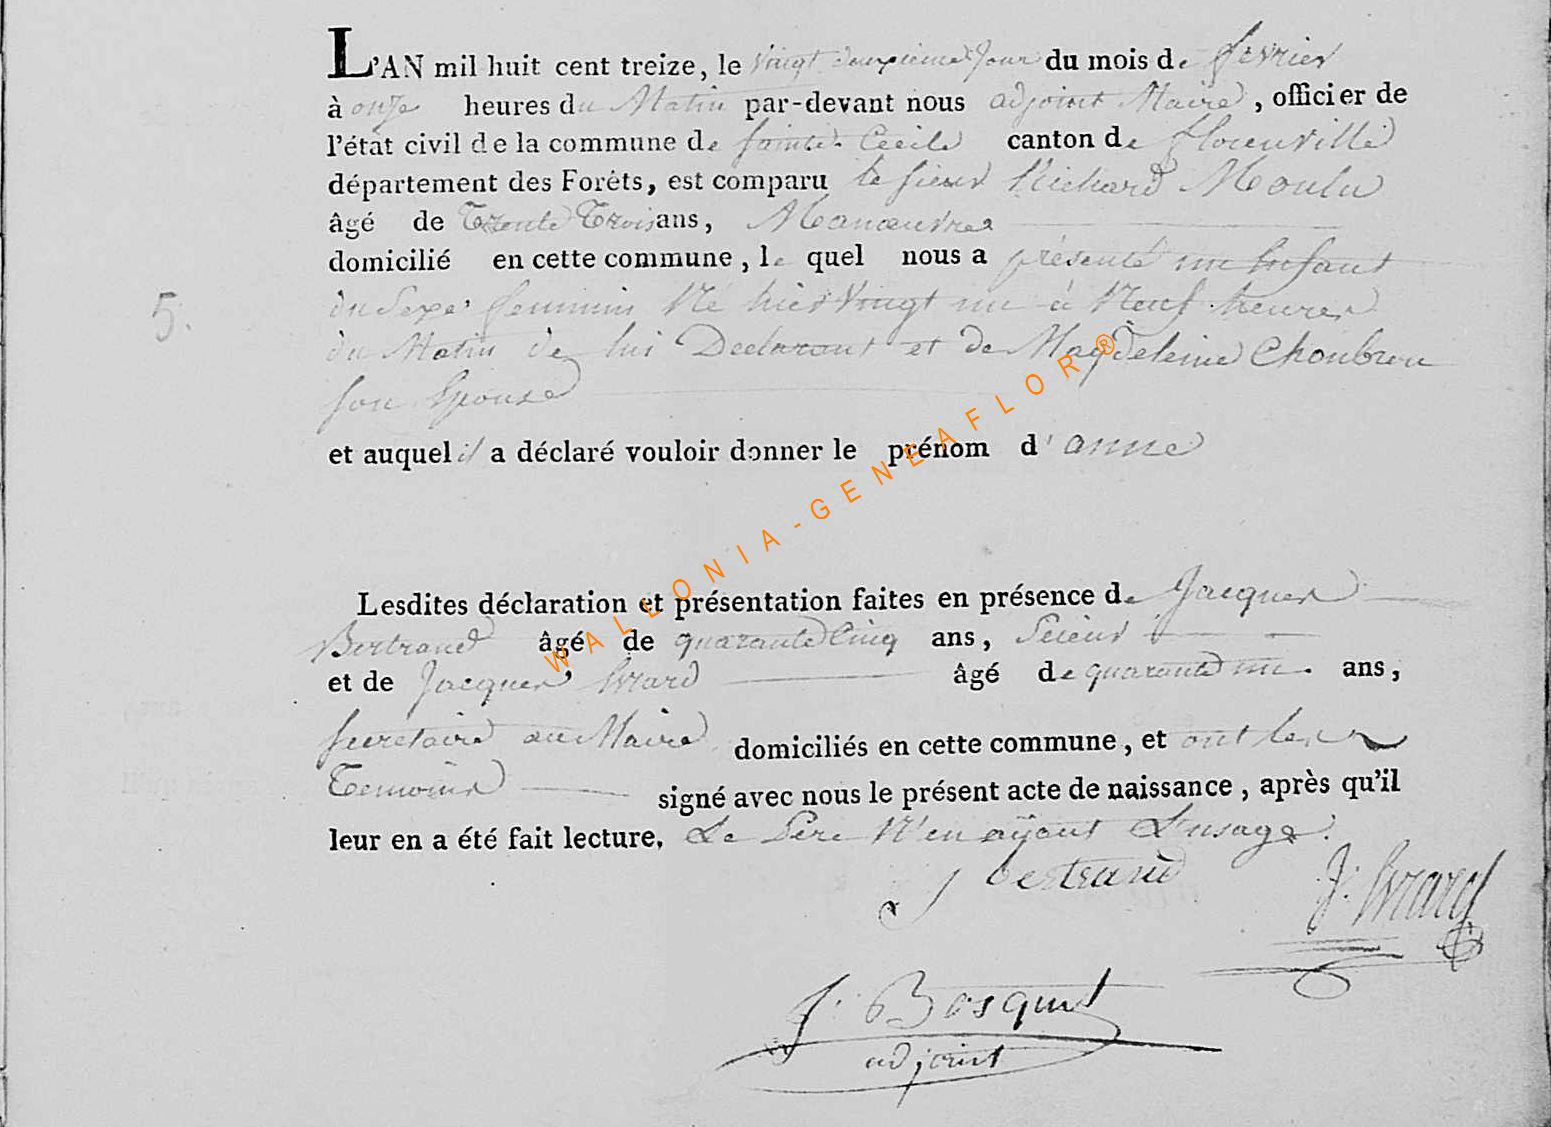 L'AN mil huit cent treize, le vingt deuxieme Jour du mois de fevrier
à onze heures du Matin par-devant nous adjoint Maire, officier de
l'état civil de la commune de sainte Cecile canton de florenville
département des Forêts, est comparu le sieur Richard Moulu
âgé de Trente Trois ans, Manœuvre
domicilié en cette commune, le quel nous a présenté un Enfant
5. du Sexe feminin Né hier vingt un à Neuf heures
du Matin de lui Declarant et de Magdeleine Choubrou
son Epouse
et auquel il a déclaré vouloir donner le prénom d'anne
WALLONIA-GENEAFLOR®
Lesdites déclaration et présentation faites en présence de Jacques
Bertrand âgé de quarante Cinq ans, Scieur
et de Jacques Evrard âgé de quarante un ans,
secretaire au Maire domiciliés en cette commune, et ont les
Temoins signé avec nous le présent acte de naissance, après qu'il
leur en a été fait lecture, Le Pere N'en aÿant L'usage.
J bertrand
J. Evrard
J. Bosquet
adjoint